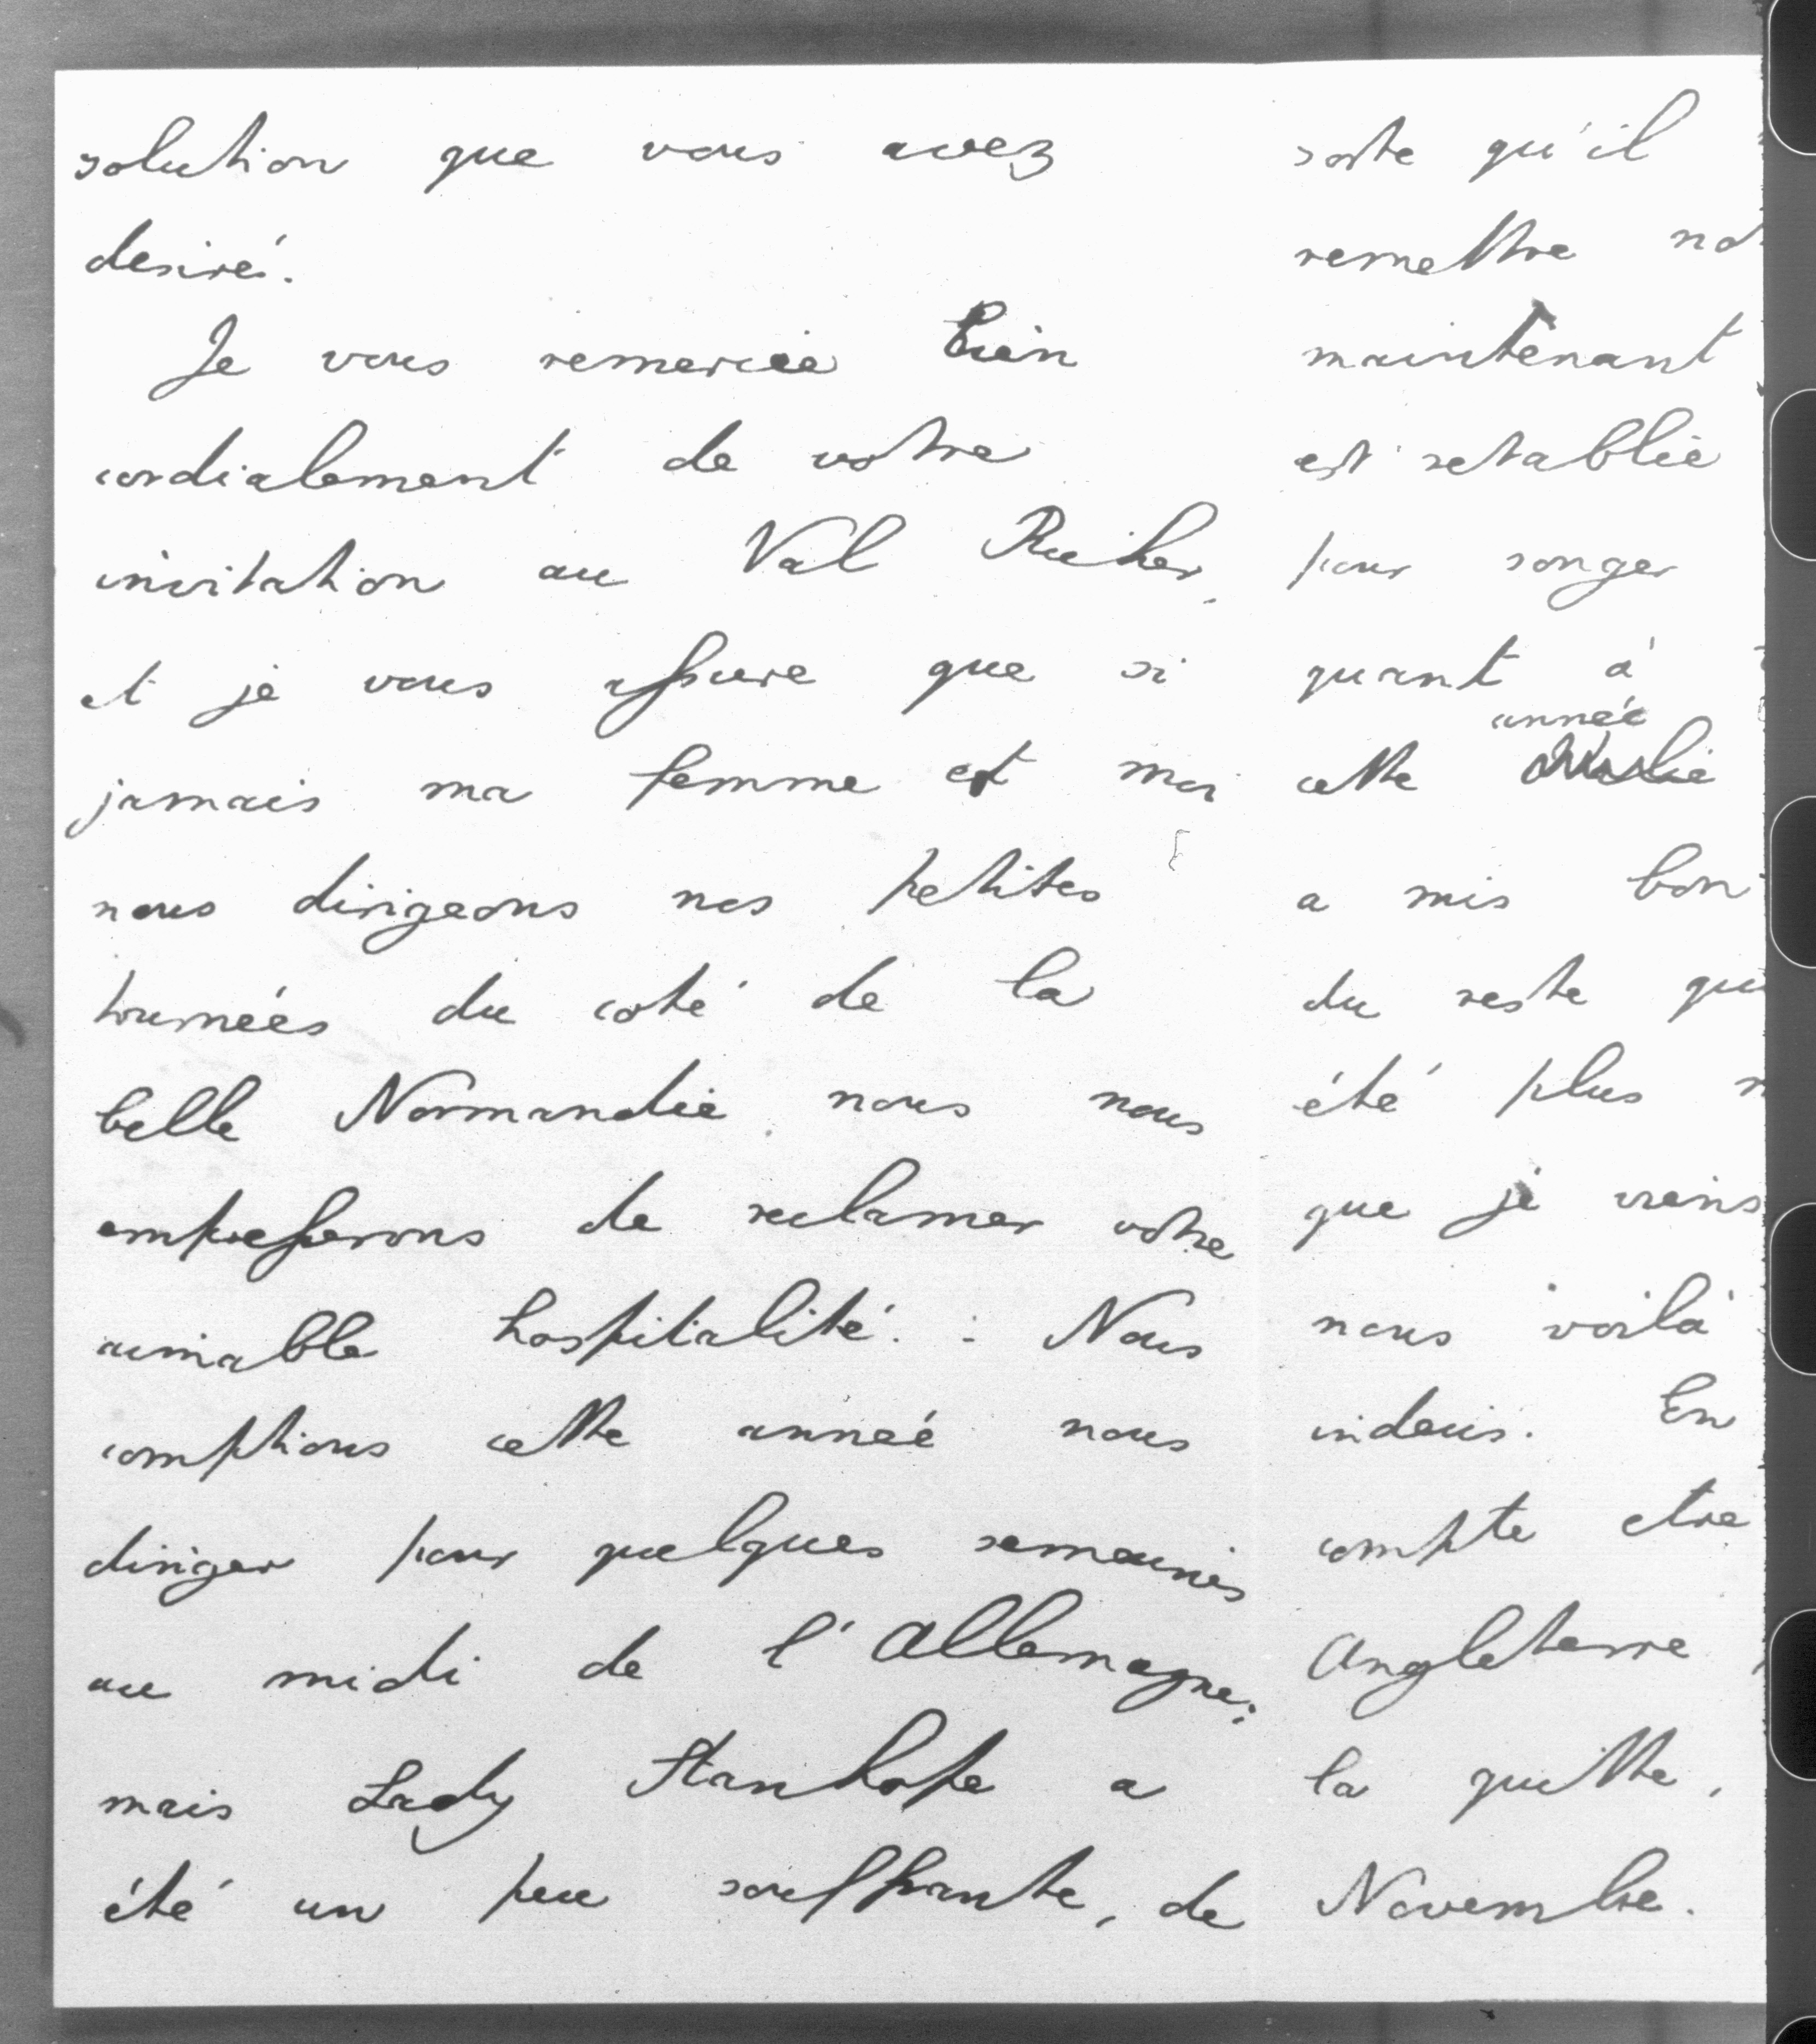 solution que vous avez
desiré.
Je vous remercie bien
cordialement de votre
invitation au Val Richer,
et je vous assure que si
jamais ma femme et moi
nous dirigeons nos petites
tournées du coté de la
belle Normandie, nous nous
empresserons de reclamer votre
aimable hospitalité. - Nous
comptions cette année nous
diriger pour quelques semaines
au midi de l'Allemagne;
mais Lady Stanhope a
été un peu souffrante, de
sorte qu'il
remettre
maintenant
est retablie
pour songer
quant à
année
cette
a mis bon
du reste
été plus
que je viens
nous voilà
indecis. En
compte etre
Angleterre
la quitte,
Novembre.